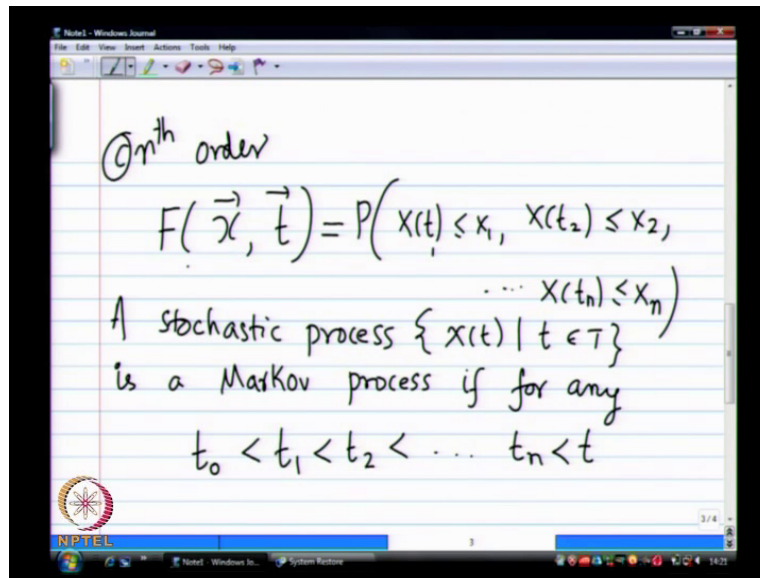 Note1 - Windows Journal
File Edit View Insert Actions Tools Help
© nth order
F(x⃗, t⃗) = P( X(t₁) ≤ x₁, X(t₂) ≤ x₂,
... X(tₙ) ≤ xₙ )
A stochastic process { X(t) | t ∈ T }
is a Markov process if for any
t₀ < t₁ < t₂ < ... tₙ < t
3/4
NPTEL
3
Note1 - Windows Jo...
System Restore
14:21